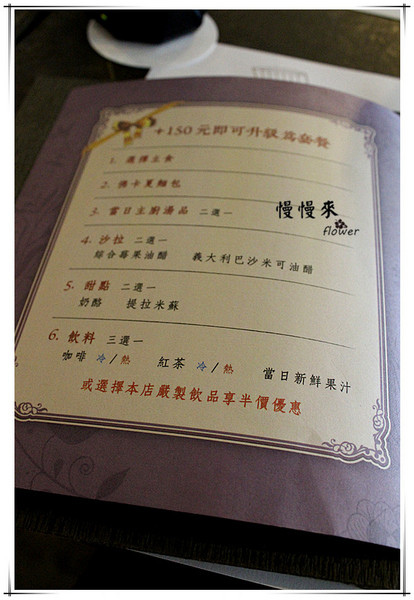 +150元即可升級為套餐
1. 選擇主食
2. 佛卡夏麵包
3. 當日主廚湯品 二選一
慢慢來
flower
4. 沙拉 二選一
綜合莓果油醋 義大利巴沙米可油醋
5. 甜點 二選一
奶酪 提拉米蘇
6. 飲料 三選一
咖啡 冷/熱 紅茶 冷/熱 當日新鮮果汁
或選擇本店嚴製飲品享半價優惠